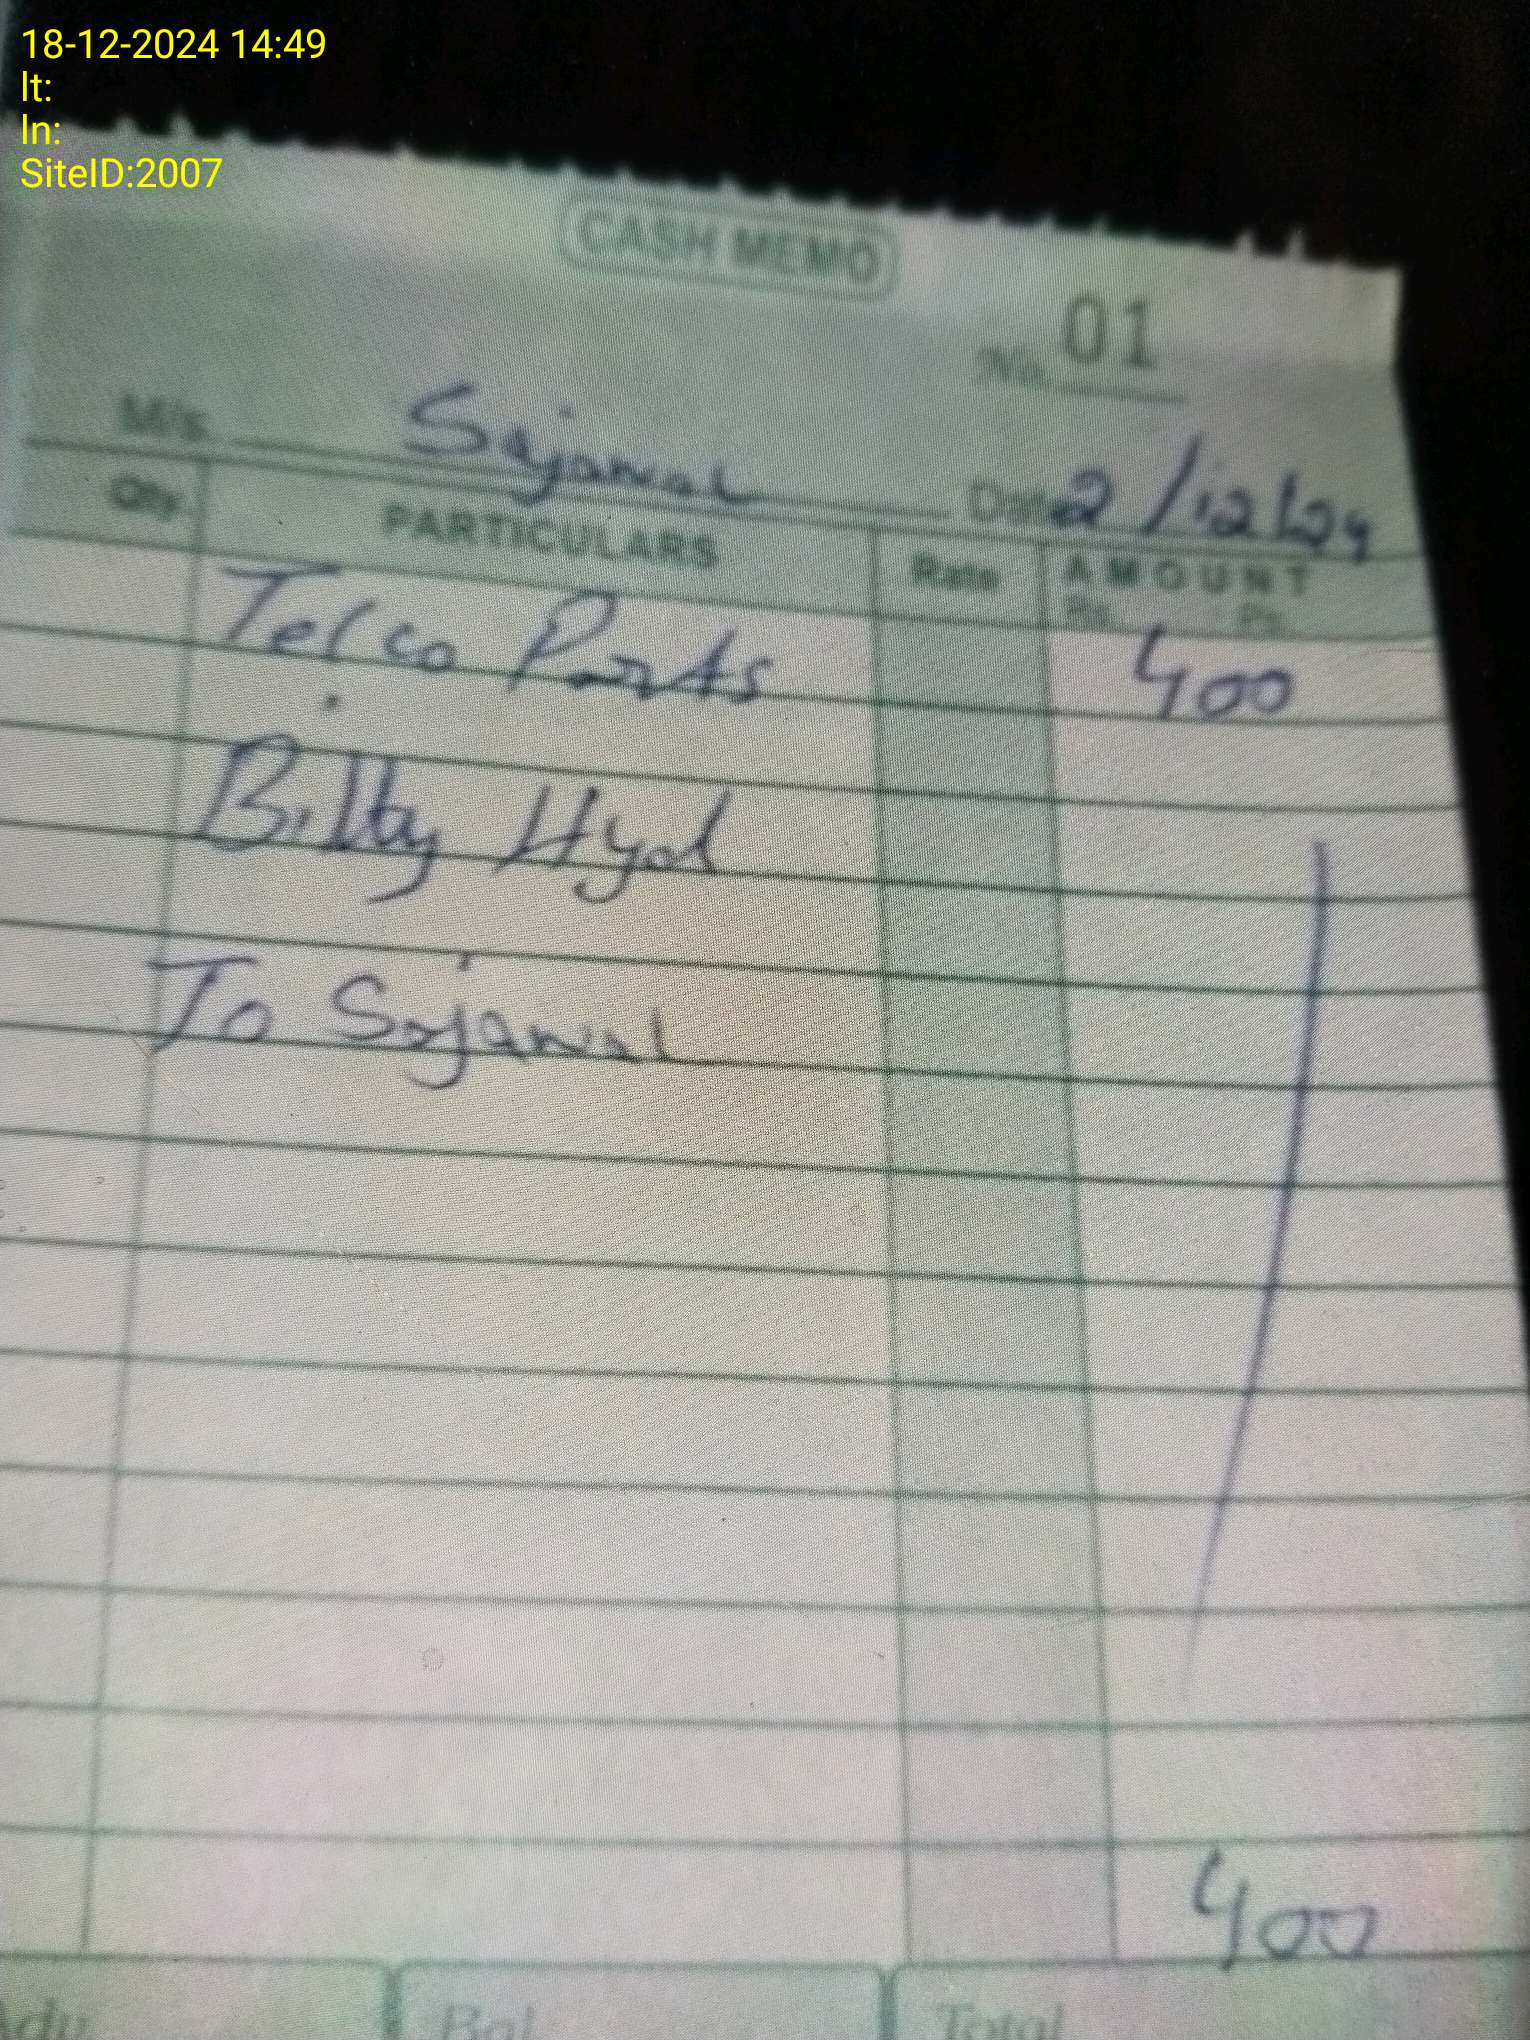 18-12-2024 14:49
lt:
ln:
SiteID:2007
CASH MEMO
No. 01
M/s. Sajawal Date 2/12/24
Qty. PARTICULARS Rate AMOUNT
Rs. Ps.
Telco Parts 400
Billty Hyd
To Sajawal
400
Adv. Bal Total